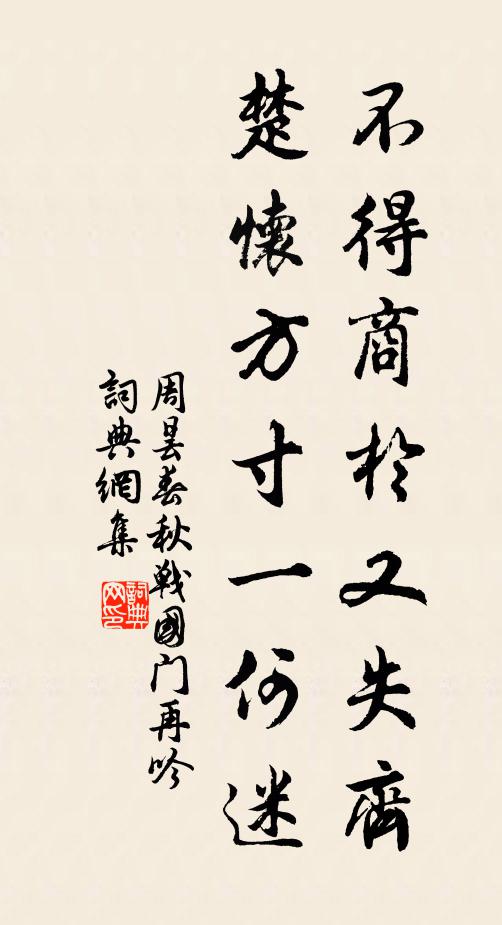 不得商於又失齊
楚懷方寸一何迷
周昙春秋戰國门再吟
詞典網集
詞典网印